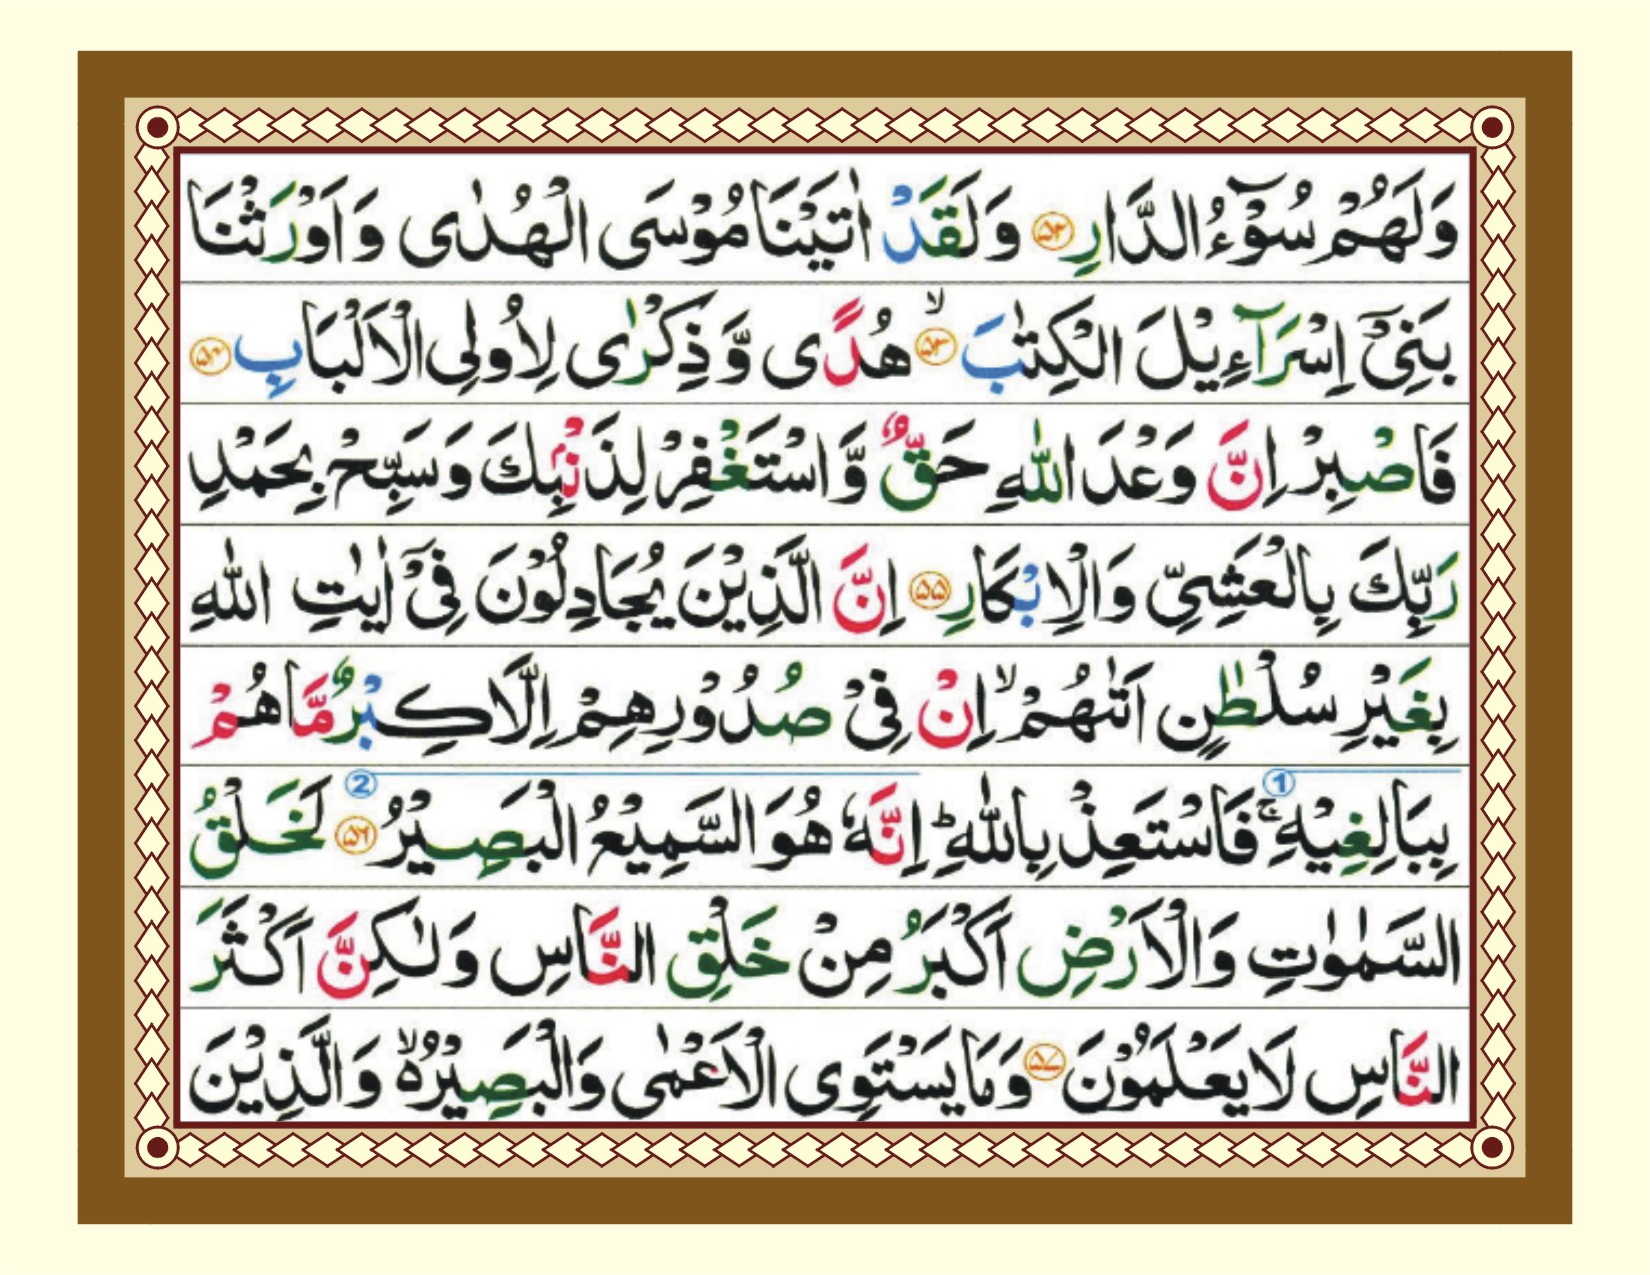 وَلَهُمْ سُوْٓءُ الدَّارِ ۵۲ وَلَقَدْ اٰتَيْنَا مُوْسَى الْهُدٰى وَاَوْرَثْنَا
بَنِیْٓ اِسْرَآءِيْلَ الْكِتٰبَ ۙ ۵۳ هُدًى وَّذِكْرٰى لِاُولِى الْاَلْبَابِ ۵۴
فَاصْبِرْ اِنَّ وَعْدَ اللّٰهِ حَقٌّ وَّاسْتَغْفِرْ لِذَنْۢبِكَ وَسَبِّحْ بِحَمْدِ
رَبِّكَ بِالْعَشِیِّ وَالْاِبْكَارِ ۵۵ اِنَّ الَّذِيْنَ يُجَادِلُوْنَ فِیْٓ اٰيٰتِ اللّٰهِ
بِغَيْرِ سُلْطٰنٍ اَتٰىهُمْ ۙ اِنْ فِیْ صُدُوْرِهِمْ اِلَّا كِبْرٌ مَّا هُمْ
① ②
بِبَالِغِيْهِ ۚ فَاسْتَعِذْ بِاللّٰهِ ؕ اِنَّهٗ هُوَ السَّمِيْعُ الْبَصِيْرُ ۵۶ لَخَلْقُ
السَّمٰوٰتِ وَالْاَرْضِ اَكْبَرُ مِنْ خَلْقِ النَّاسِ وَلٰكِنَّ اَكْثَرَ
النَّاسِ لَا يَعْلَمُوْنَ ۵۷ وَمَا يَسْتَوِى الْاَعْمٰى وَالْبَصِيْرُ ۙ۬ وَالَّذِيْنَ